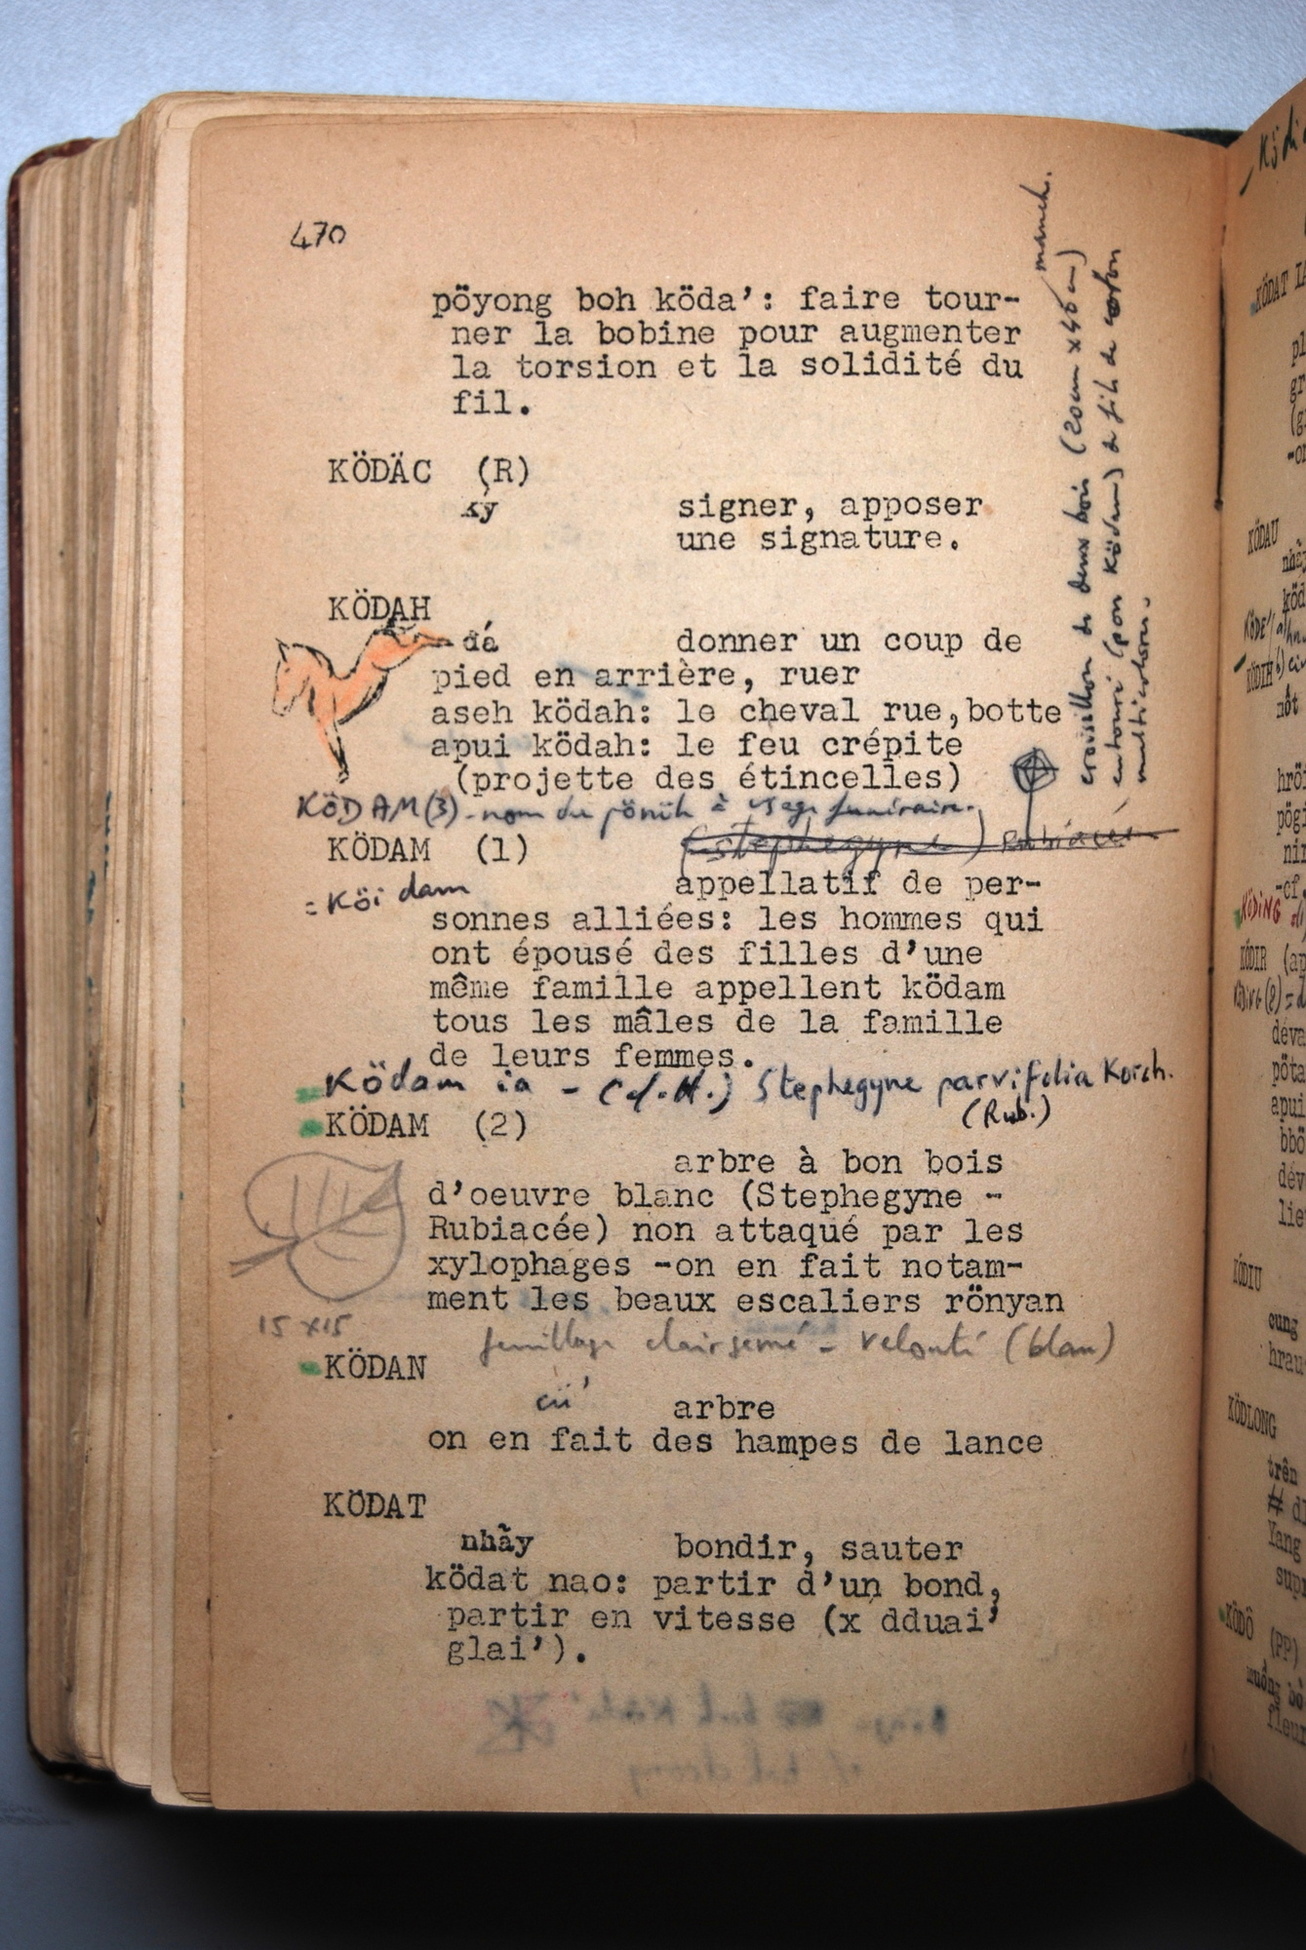 470
pöyong boh köda’: faire tour-
ner la bobine pour augmenter
la torsion et la solidité du
fil.
KÖDÄC (R)
ký signer, apposer
une signature.
KÖDAH
đá donner un coup de
pied en arrière, ruer
aseh ködah: le cheval rue,botte
apui ködah: le feu crépite
(projette des étincelles)
KÖDAM (3) - nom du pönüh à usage funéraire.
croisillon de deux bois (20cm x 40cm) manch.
entouré (pon ködam) de fils de coton
multicolores.
KÖDAM (1) (stephegyne) Rubiacée
= Köi dam appellatif de per-
sonnes alliées: les hommes qui
ont épousé des filles d’une
même famille appellent ködam
tous les mâles de la famille
de leurs femmes.
Ködam ia - (d.H.) Stephegyne parvifolia Korth.
(Rub.)
KÖDAM (2)
arbre à bon bois
d’oeuvre blanc (Stephegyne -
Rubiacée) non attaqué par les
xylophages -on en fait notam-
ment les beaux escaliers rönyan
15 x 15
feuillage clairsemé - velouté (blanc)
KÖDAN
arbre
on en fait des hampes de lance
KÖDAT
nhãy bondir, sauter
ködat nao: partir d’un bond,
partir en vitesse (x dduai’
glai’).
KÖDAT
KÖDAU
KÖDIH
KÖDING
KÖDIR
KÖDIU
cung
hrau
KÖDLONG
trên
Yang
KÖDÔ (PP)